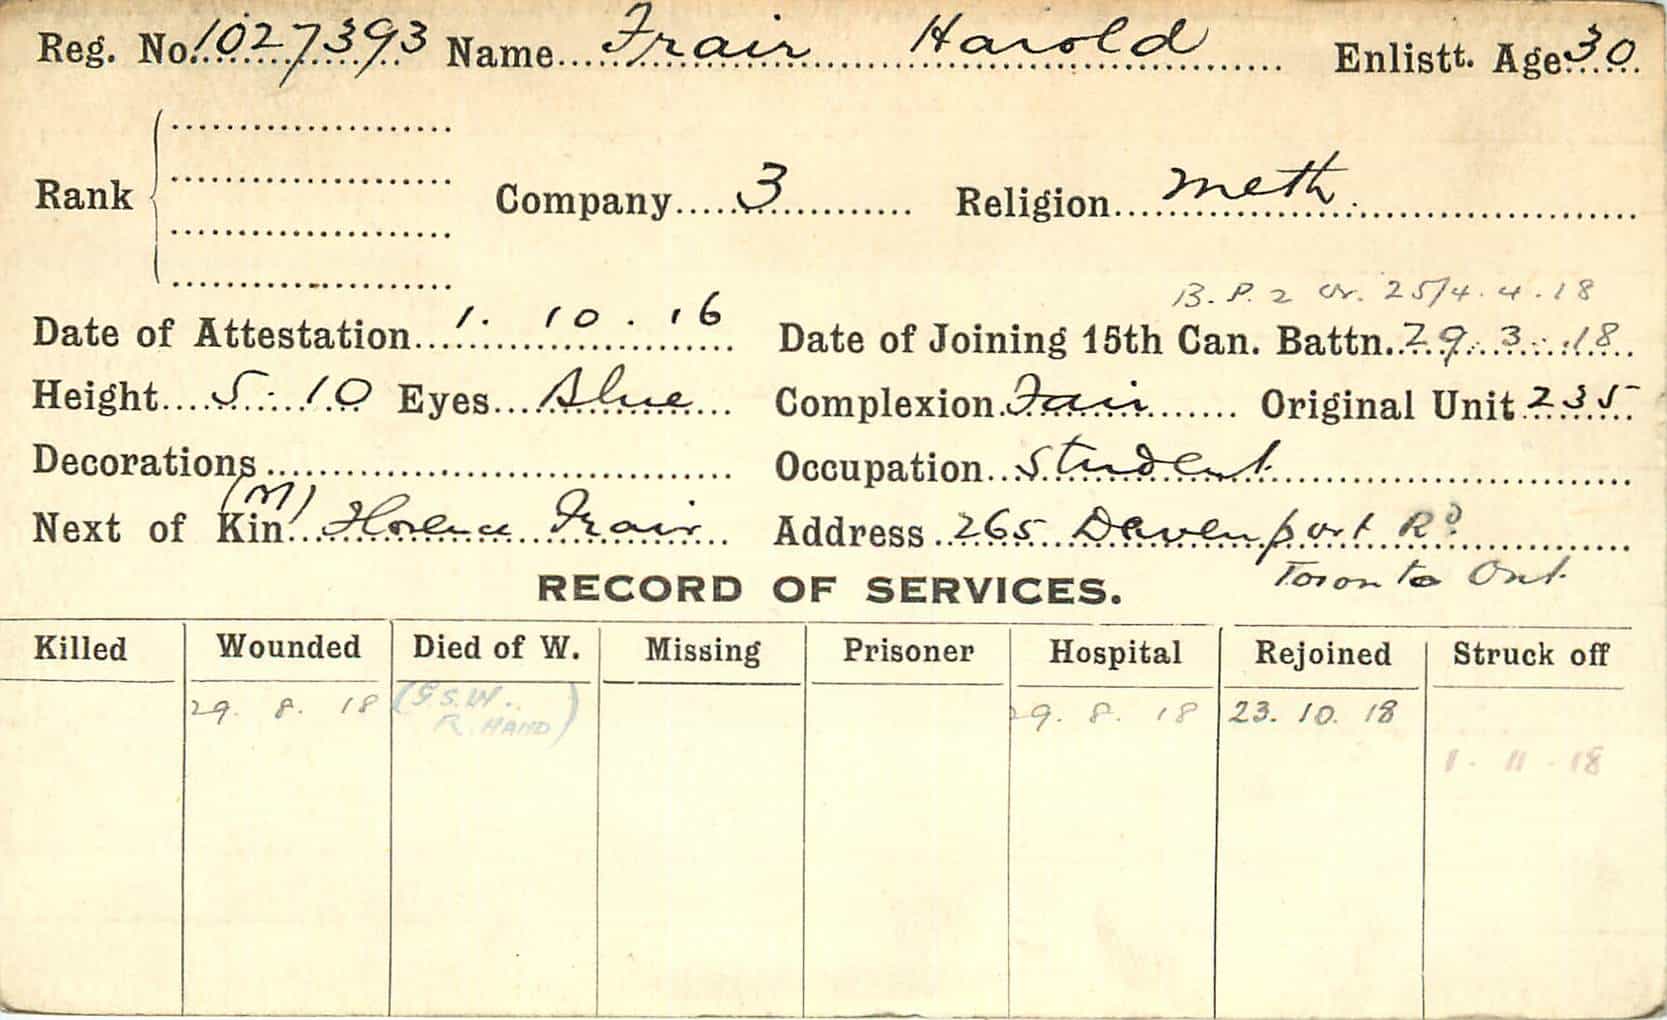 Reg. No. 1027393 Name Frair Harold Enlistt. Age 30
Rank Company 3 Religion Meth.
B.P. 2 Or. 25/4.4.18
Date of Attestation 1. 10. 16 Date of Joining 15th Can. Battn. 29. 3. 18
Height 5. 10 Eyes Blue Complexion Fair Original Unit 235
Decorations Occupation Student
Next of Kin (M) Florence Frair Address 265 Davenport Rd
Toronto Ont.
RECORD OF SERVICES.
Killed Wounded Died of W. Missing Prisoner Hospital Rejoined Struck off
29. 8. 18 (G.S.W. R. HAND) 29. 8. 18 23. 10. 18
1. 11. 18